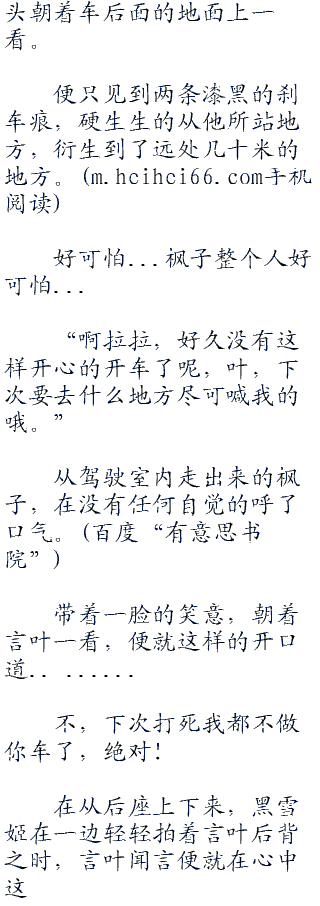 头朝着车后面的地面上一
看。
便只见到两条漆黑的刹
车痕，硬生生的从他所站地
方，衍生到了远处几十米的
地方。(m.hcihci66.com手机
阅读)
好可怕...枫子整个人好
可怕...
“啊拉拉，好久没有这
样开心的开车了呢，叶，下
次要去什么地方尽可喊我的
哦。”
从驾驶室内走出来的枫
子，在没有任何自觉的呼了
口气。(百度“有意思书
院”)
带着一脸的笑意，朝着
言叶一看，便就这样的开口
道.. ......
不，下次打死我都不做
你车了，绝对！
在从后座上下来，黑雪
姬在一边轻轻拍着言叶后背
之时，言叶闻言便就在心中
这